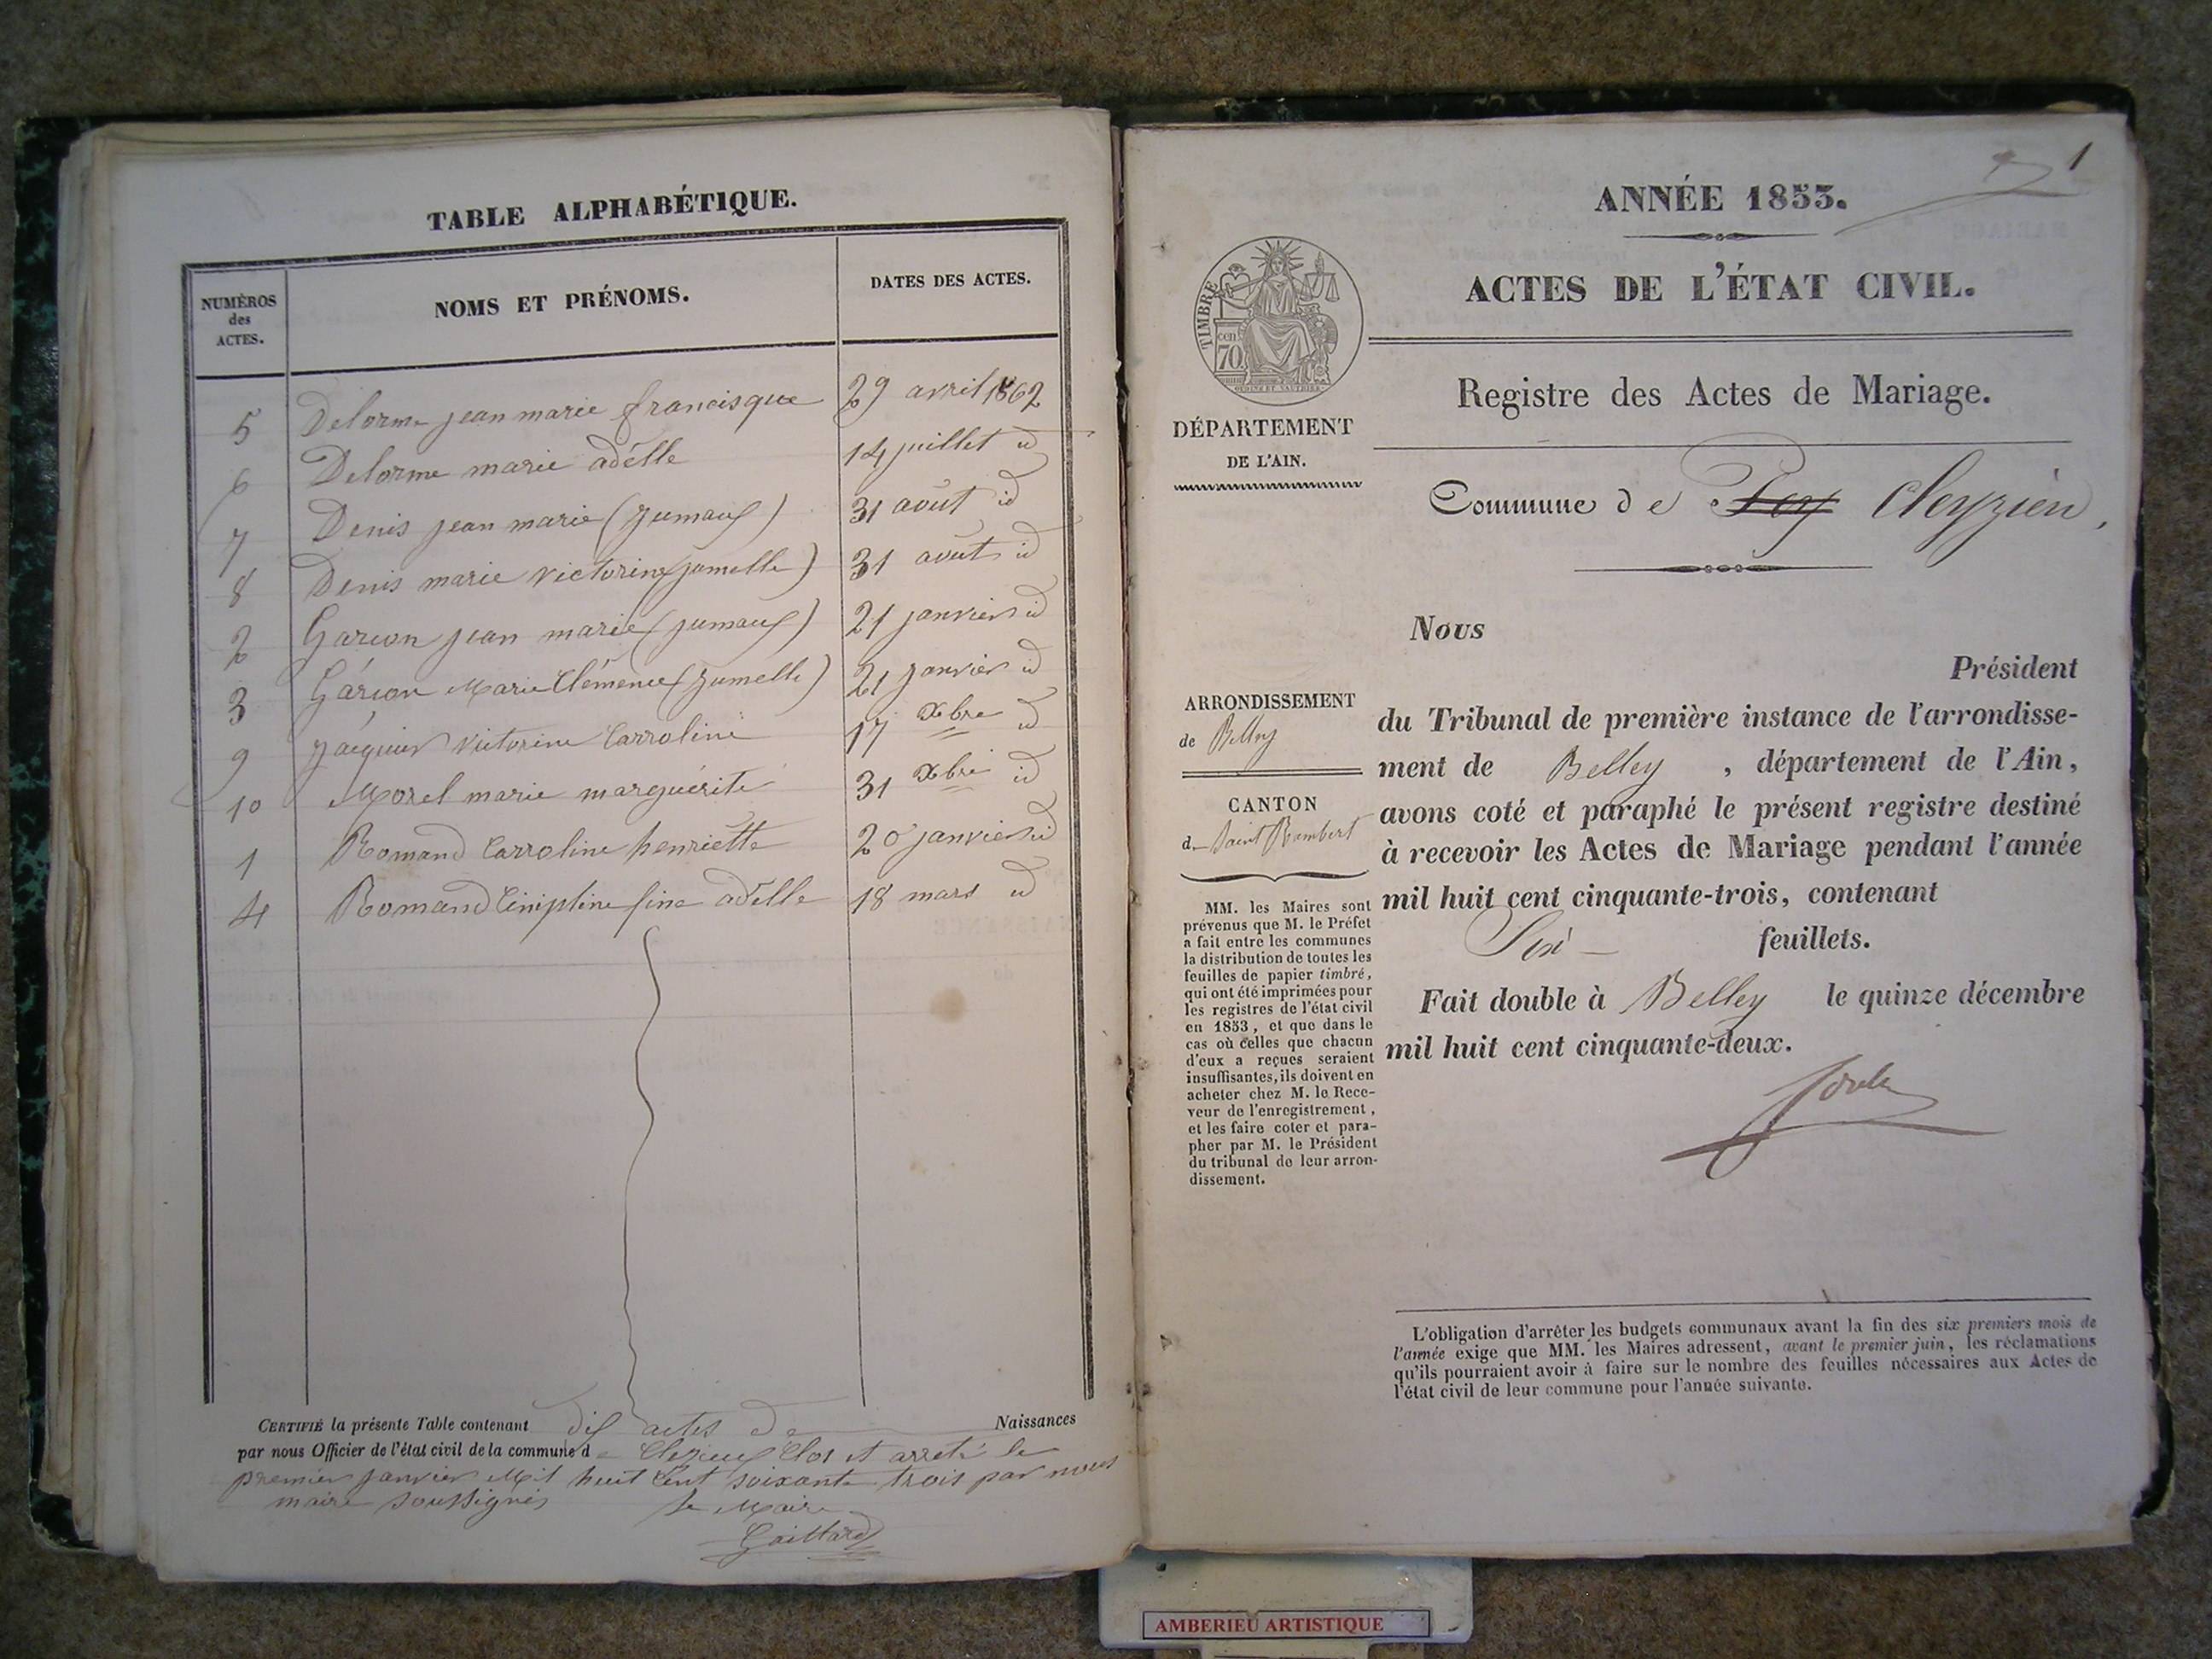 TABLE ALPHABÉTIQUE.
NUMÉROS des ACTES.
NOMS ET PRÉNOMS.
DATES DES ACTES.
5 Delorme jean marie francisque 29 avril 1862
6 Delorme marie adélle 14 juillet id
7 Denis jean marie (jumaux) 31 août id
8 Denis marie victorine (jumelle) 31 août id
2 Garcon jean marie (jumaux) 21 janvier id
3 Garcon Marie Clémence (jumelle) 21 janvier id
9 jacquier victorine Carroline 17 xbre id
10 Morel marie marguérite 31 xbre id
1 Romand Carroline henriette 20 janvier id
4 Romand adélle 18 mars id
CERTIFIÉ la présente Table contenant dix actes de Naissances
par nous Officier de l'état civil de la commune de Clos et arreté le
premier janvier Mil huit Cent soixante trois par nous
maire soussignés
le Maire
Gaillard
1
ANNÉE 1853.
ACTES DE L'ÉTAT CIVIL.
TIMBRE
cen
70
Registre des Actes de Mariage.
DÉPARTEMENT
DE L'AIN.
Commune de Cleyzieu,
Nous
Président
du Tribunal de première instance de l'arrondisse-
ment de Belley , département de l'Ain,
avons coté et paraphé le présent registre destiné
à recevoir les Actes de Mariage pendant l'année
mil huit cent cinquante-trois, contenant
Six feuillets.
Fait double à Belley le quinze décembre
mil huit cent cinquante-deux.
ARRONDISSEMENT
de Belley
CANTON
de Saint Rambert
MM. les Maires sont
prévenus que M. le Préfet
a fait entre les communes
la distribution de toutes les
feuilles de papier timbré,
qui ont été imprimées pour
les registres de l'état civil
en 1853, et que dans le
cas où celles que chacun
d'eux a reçues seraient
insuffisantes, ils doivent en
acheter chez M. le Rece-
veur de l'enregistrement,
et les faire coter et para-
pher par M. le Président
du tribunal de leur arron-
dissement.
L'obligation d'arrêter les budgets communaux avant la fin des six premiers mois de
l'année exige que MM. les Maires adressent, avant le premier juin, les réclamations
qu'ils pourraient avoir à faire sur le nombre des feuilles nécessaires aux Actes de
l'état civil de leur commune pour l'année suivante.
AMBERIEU ARTISTIQUE